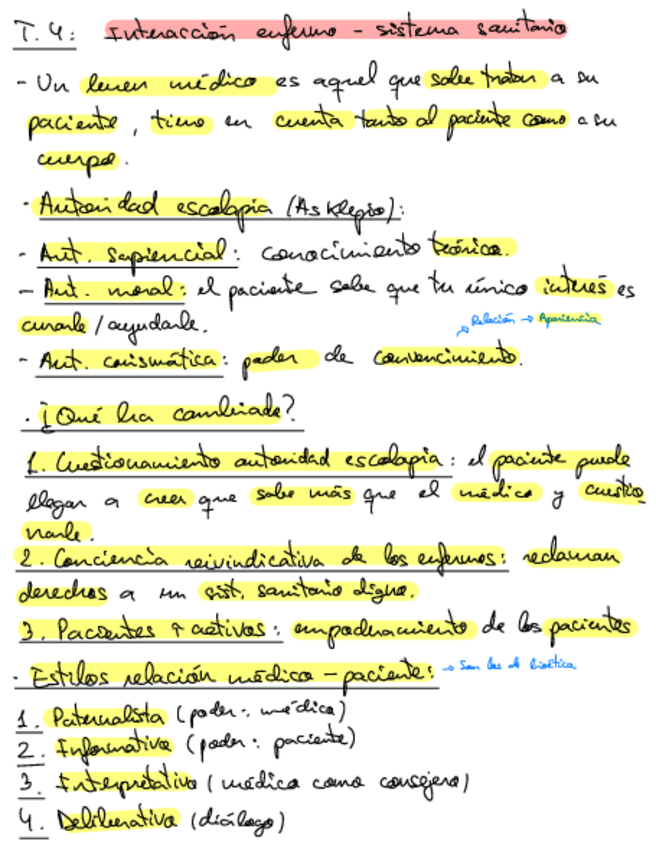 T.4: Interacción enfermo - sistema sanitario
- Un buen médico es aquel que sabe tratar a su
paciente, tiene en cuenta tanto al paciente como a su
cuerpo.
· Autoridad escolapia (Asklepio):
- Aut. sapiencial: conocimiento teórico.
- Aut. moral: el paciente sabe que tu único interés es
curarle / ayudarle.
Relación → Apariencia
- Aut. carismática: poder de convencimiento.
· ¿Qué ha cambiado?
1. Cuestionamiento autoridad escolapia: el paciente puede
llegar a creer que sabe más que el médico y cuestio
narle.
2. Conciencia reivindicativa de los enfermos: reclaman
derechos a un sist. sanitario digno.
3. Pacientes ↑ activos: empoderamiento de los pacientes
· Estilos relación médico - paciente: → Son los de Bioética
1. Paternalista (poder: médico)
2. Informativa (poder: paciente)
3. Interpretativa (médico como consejero)
4. Deliberativa (diálogo)